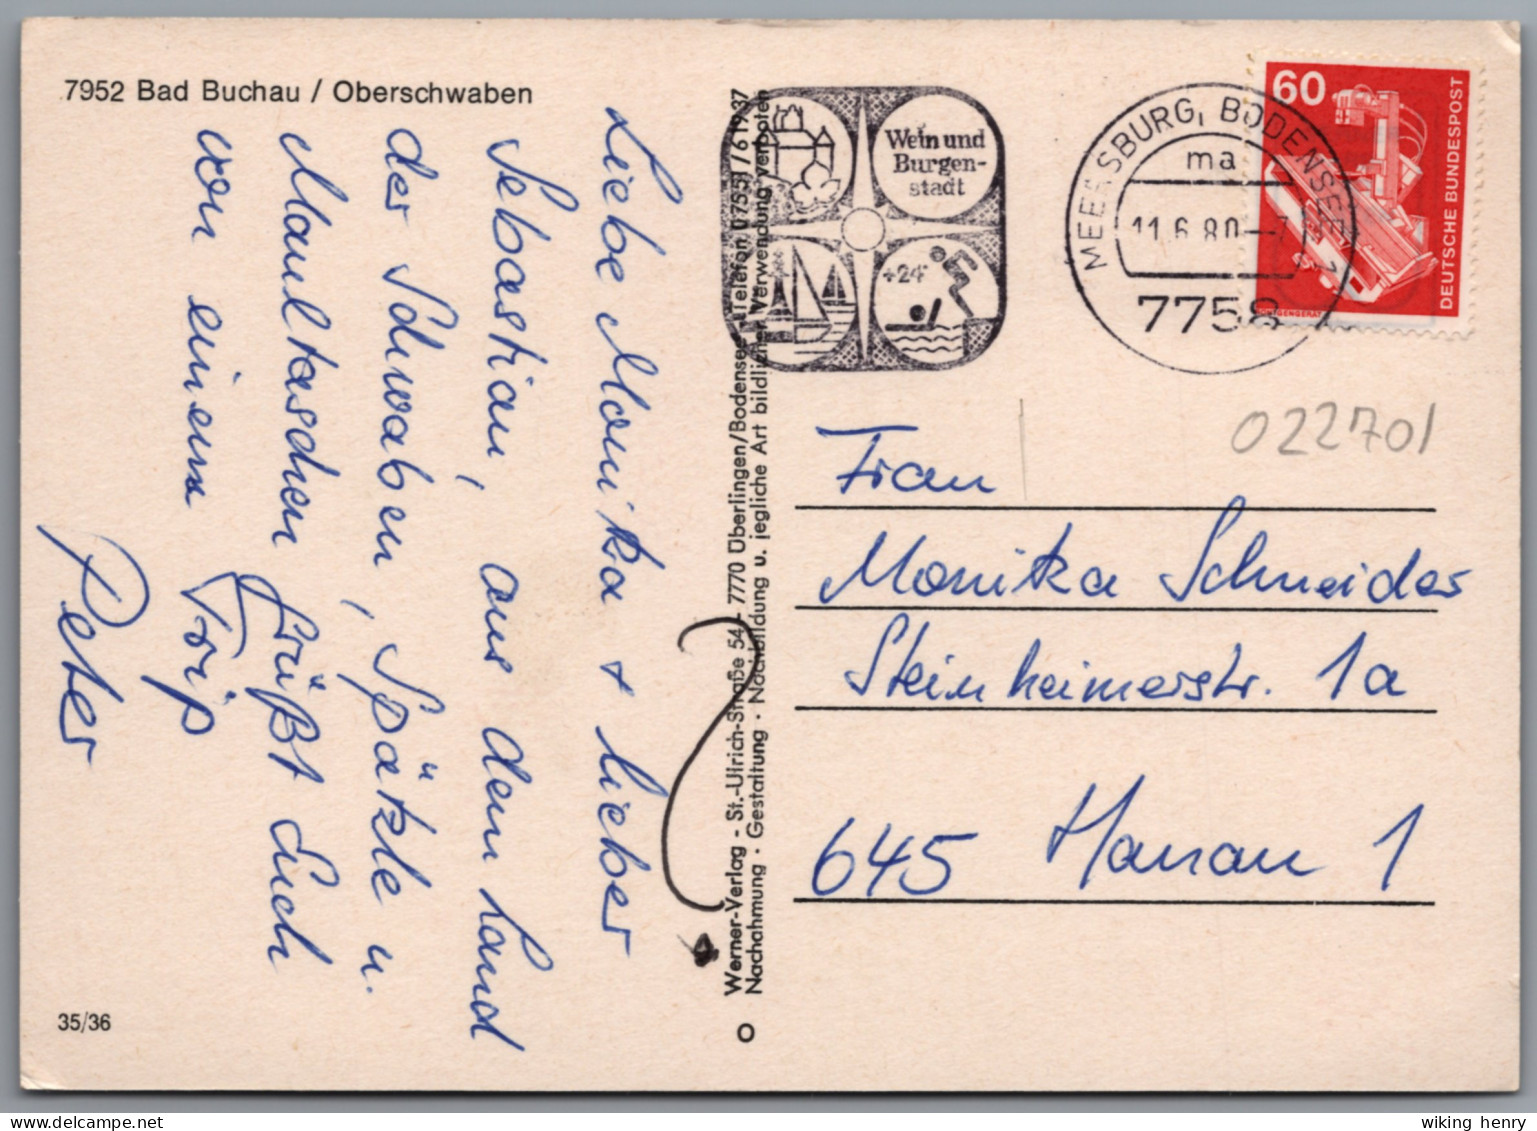 7952 Bad Buchau / Oberschwaben
Liebe Monika + lieber
Sebastian, aus dem Land
der Schwaben, Spätzle u.
Maultaschen grüßt Euch
von einem Trip
Peter
35/36
Werner-Verlag - St.-Ulrich-Straße 54 - 7770 Überlingen/Bodensee - Telefon 07551/61937
Nachahmung · Gestaltung · Nachbildung u. jegliche Art bildlicher Verwendung verboten
O
Wein und
Burgen-
stadt
+24°
MEERSBURG, BODENSEE 1
ma
11.6.80-7
7758
60
DEUTSCHE BUNDESPOST
022701
Frau
Monika Schneider
Steinheimerstr. 1a
645 Hanau 1
wiking henry